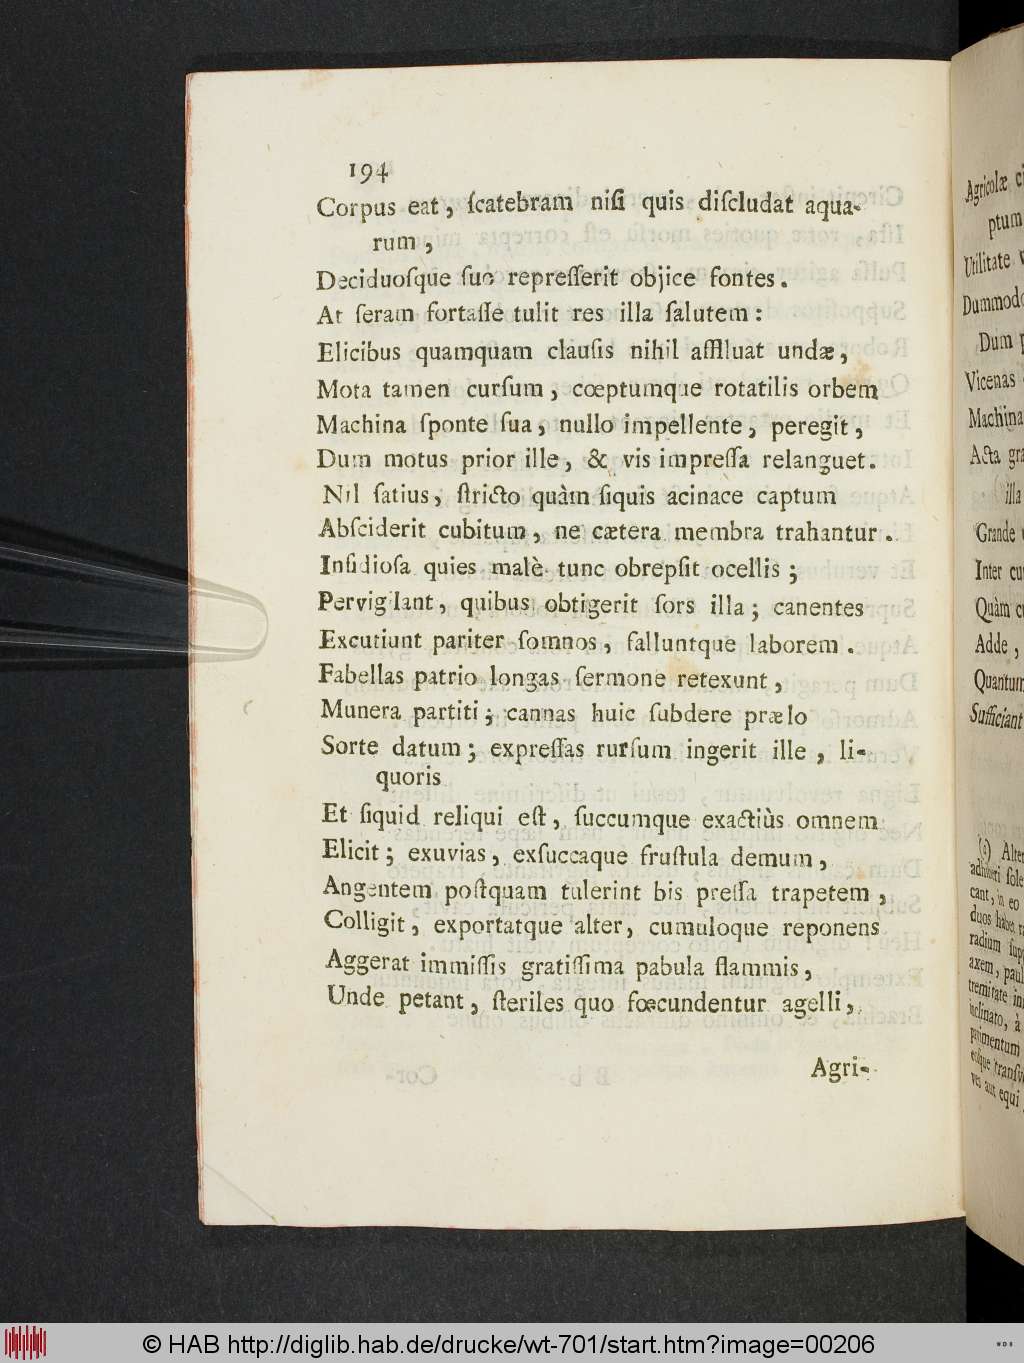 194
Corpus eat, ſcatebram niſi quis diſcludat aqua-
rum,
Deciduoſque ſuo repreſſerit objice fontes.
At ſeram fortaſſe tulit res illa ſalutem:
Elicibus quamquam clauſis nihil affluat undæ,
Mota tamen curſum, cœptumque rotatilis orbem
Machina ſponte ſua, nullo impellente, peregit,
Dum motus prior ille, & vis impreſſa relanguet.
Nil ſatius, ſtricto quàm ſiquis acinace captum
Abſciderit cubitum, ne cætera membra trahantur.
Inſidioſa quies malè tunc obrepſit ocellis;
Pervigilant, quibus obtigerit ſors illa; canentes
Excutiunt pariter ſomnos, falluntque laborem.
Fabellas patrio longas ſermone retexunt,
Munera partiti; cannas huic ſubdere prælo
Sorte datum; expreſſas rurſum ingerit ille, li-
quoris
Et ſiquid reliqui eſt, ſuccumque exactiùs omnem
Elicit; exuvias, exſuccaque fruſtula demum,
Angentem poſtquam tulerint bis preſſa trapetem,
Colligit, exportatque alter, cumuloque reponens
Aggerat immiſſis gratiſſima pabula flammis,
Unde petant, ſteriles quo fœcundentur agelli,
Agri-
Agricolæ
ptum
Utilitate
Dummodo
Dum
Vicenas
Machina
Acta
illa
Grande
Inter
Quàm
Adde,
Quantum
Sufficiant
Alter
cant, in eo
duos
radium
axem,
inclinato, à
pavimentum
ves aut equi
© HAB http://diglib.hab.de/drucke/wt-701/start.htm?image=00206